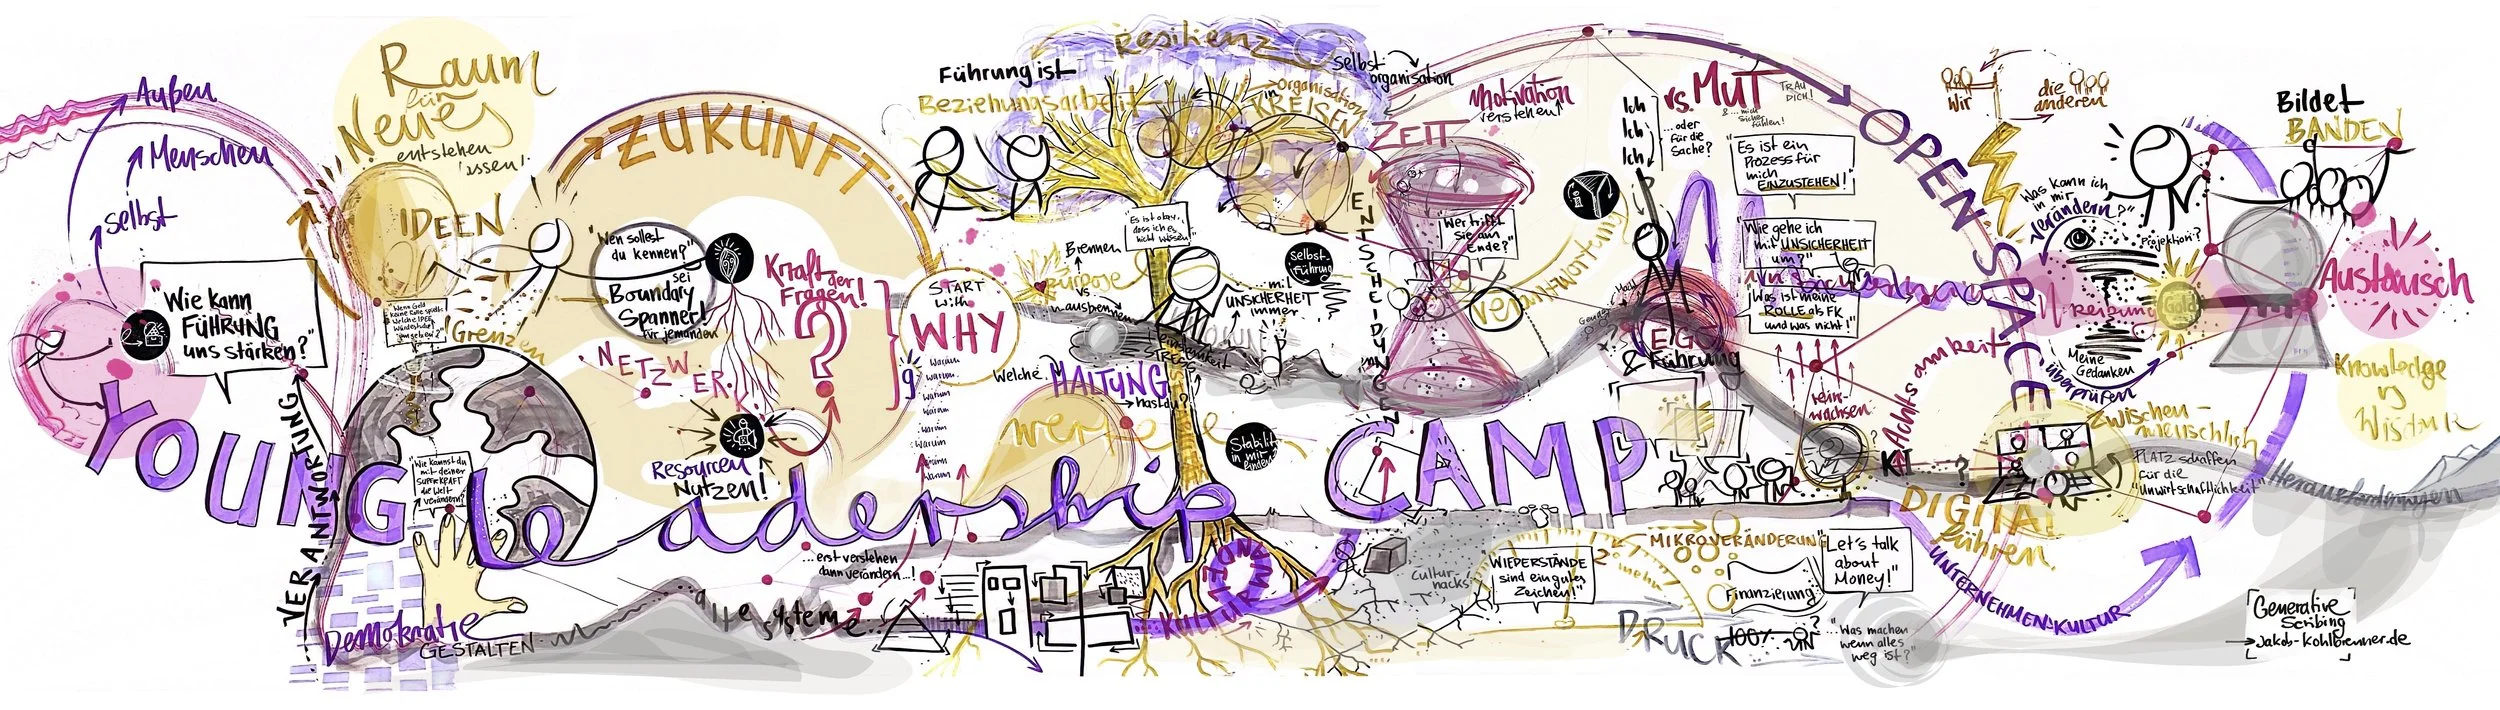 Außen
Menschen
selbst
"Wie kann
FÜHRUNG
uns stärken?"
YOUNG
Leadership
CAMP
Raum
für
Neues
entstehen
lassen!
IDEEN
"Wenn Geld
keine Rolle spielt:
Welche IDEE
würdest du
umsetzen?"
Grenzen
VERANTWORTUNG
"Wie kannst du
mit deiner
SUPERKRAFT
die Welt
verändern?"
Demokratie
GESTALTEN
ZUKUNFT
"Wen sollest
du kennen?"
sei
Boundary
Spanner!
für jemanden
NETZWERK
Resourcen
Nutzen!
Kraft der
Fragen!
?
START
with
WHY
Warum
warum
warum
Warum
...erst verstehen
dann verändern...!
alte Systeme
Führung ist
Beziehungsarbeit
Resilienz
Selbst-
organisation
Organisation
in
KREISEN
"Es ist okay,
dass ich es
nicht weiss!"
Brennen
Purpose
vs.
ausbrennen
Selbst
Führung
mit
UNSICHERHEIT
immer
Einsamkeit
STRESS
Welche
HALTUNG
hast du?
werte
Stabilität
in mir
finden
KULTUR
WANDEL
ZEIT
ENTSCHEIDUNGEN
"Wer trifft
sie am
Ende?"
Motivation
verstehen!
Verantwortung
Ich
Ich
Ich
...oder
für die
Sache?
vs. MUT
TRAU
DICH!
"Es ist ein
Prozess für
mich
EINZUSTEHEN!"
"Wie gehe ich
mit UNSICHERHEIT
um?"
"Was ist meine
ROLLE als FK
und was nicht!"
Macht
Gender
?
EGO
& Führung
rein-
wachsen
Achtsamkeit
KI
?
OPEN SPACE
Wir
die
anderen
"Was kann ich
in mir
verändern?"
Projektion?
Reibung
Gold
Meine
Gedanken
überprüfen
Bildet
BANDEN
Austausch
Knowledge
Zwischen-
menschlich
PLATZ schaffen
für die
"Unwirtschaftlichkeit"
Herausforderungen
DIGITAL
führen
UNTERNEHMENSKULTUR
Culture
hacks!
"WIEDERSTÄNDE
sind ein gutes
Zeichen!"
MIKROVERÄNDERUNG
2° mehr
DRUCK
100%
Finanzierung
"Let's talk
about
Money!"
"Was machen
wenn alles
weg ist?"
Generative
Scribing
jakob-kohlbrenner.de